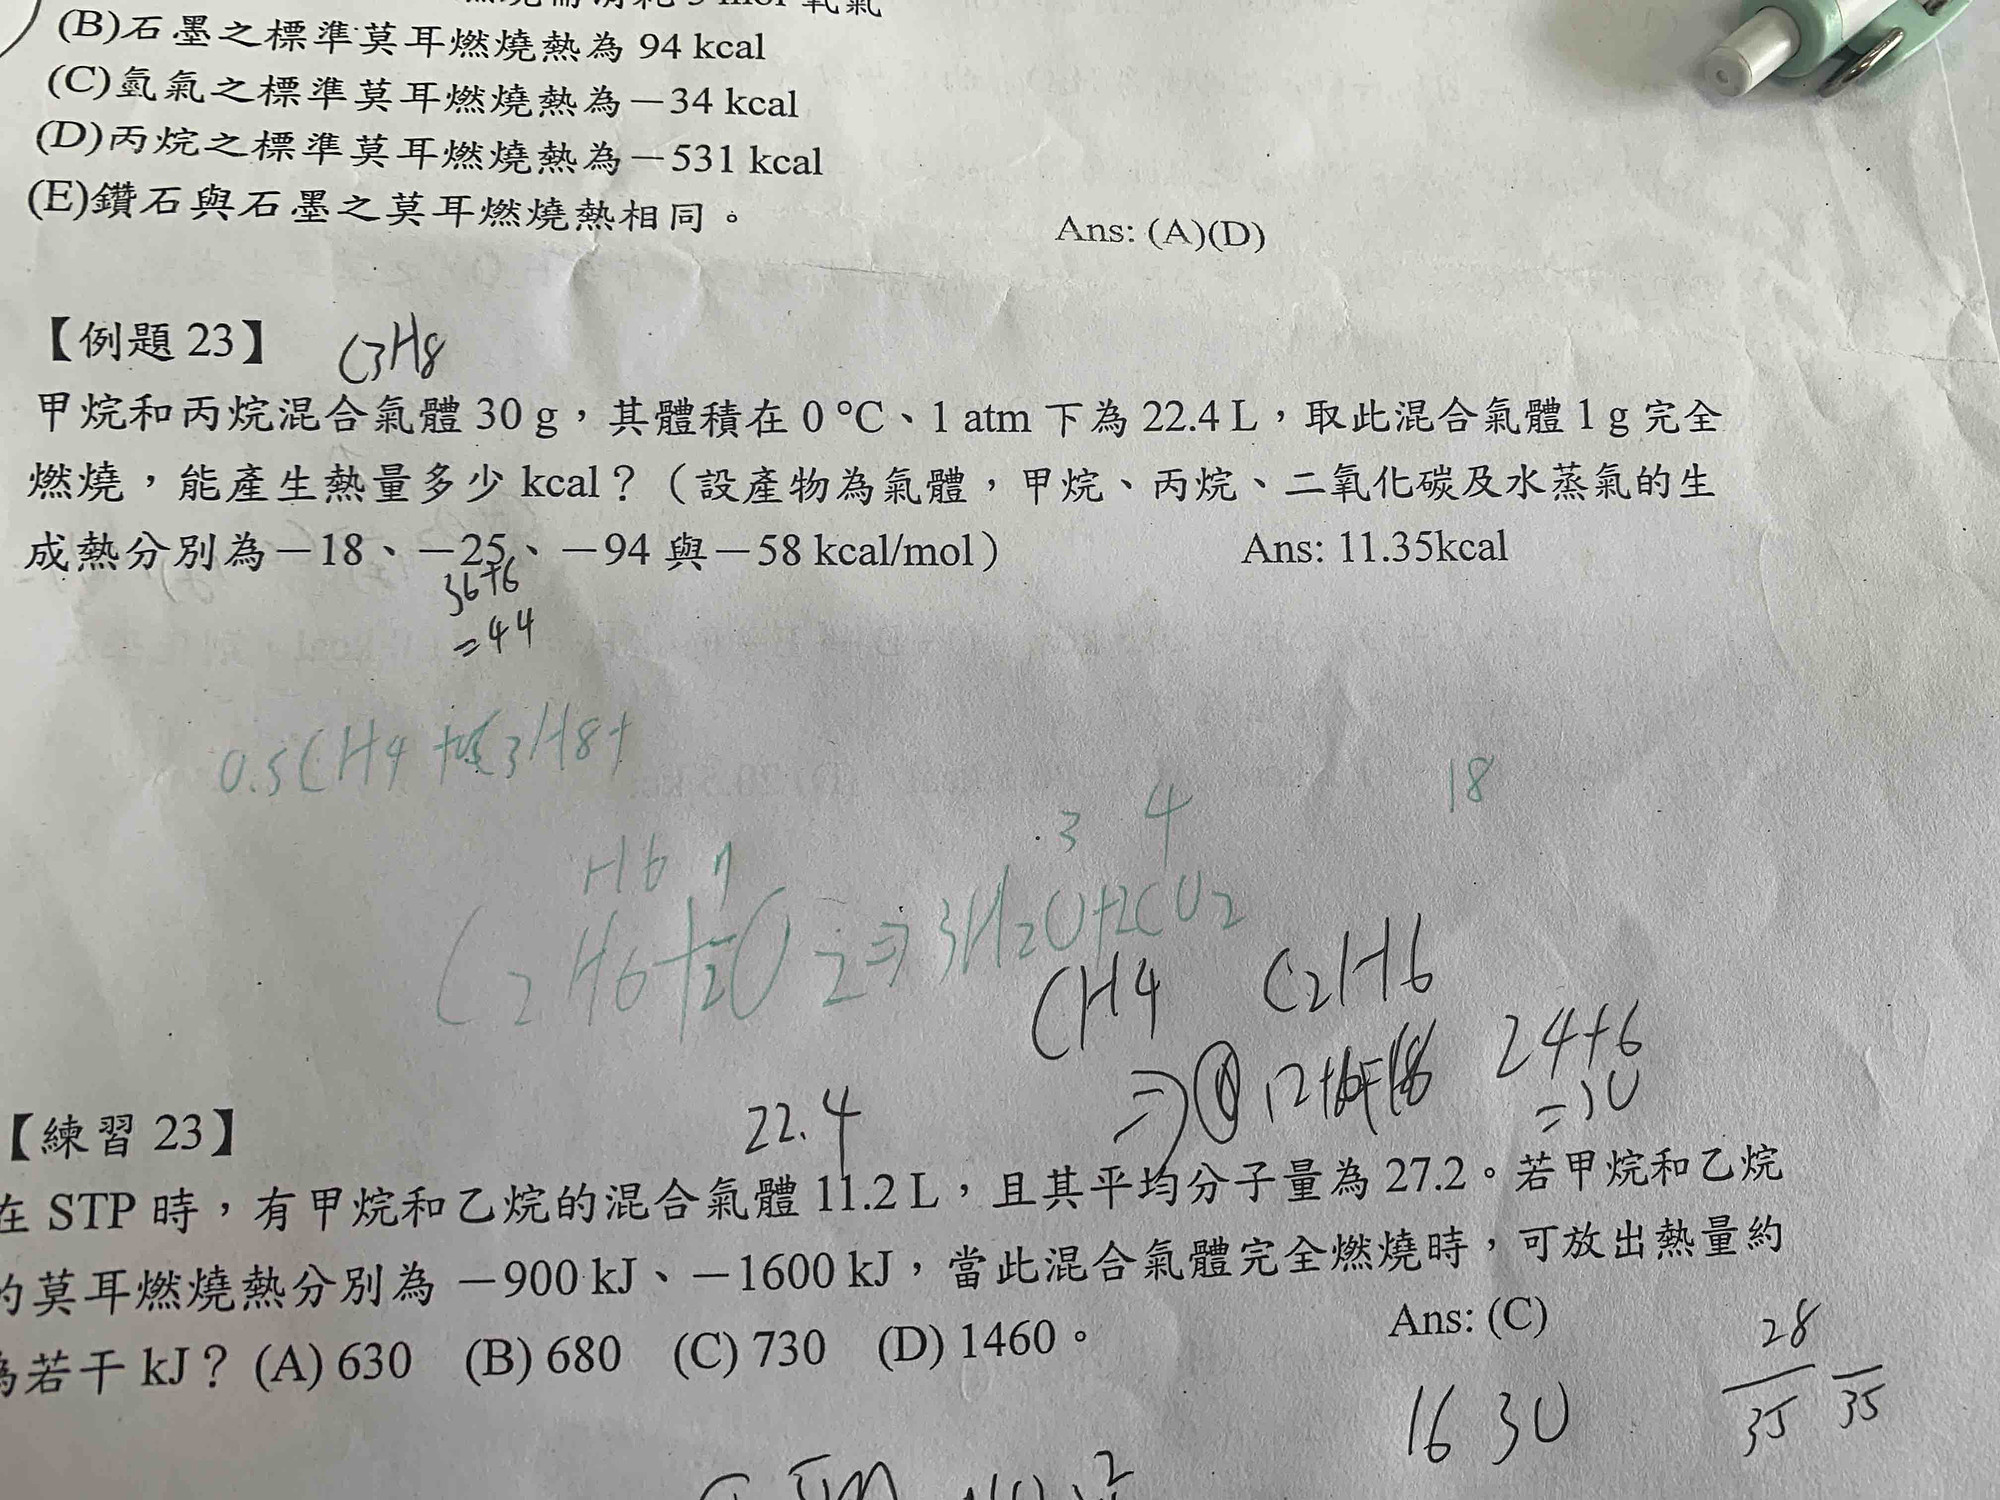 3 mol 氧氣
(B)石墨之標準莫耳燃燒熱為 94 kcal
(C)氫氣之標準莫耳燃燒熱為－34 kcal
(D)丙烷之標準莫耳燃燒熱為－531 kcal
(E)鑽石與石墨之莫耳燃燒熱相同。
Ans: (A)(D)
【例題 23】
C3H8
甲烷和丙烷混合氣體 30 g，其體積在 0 °C、1 atm 下為 22.4 L，取此混合氣體 1 g 完全
燃燒，能產生熱量多少 kcal？（設產物為氣體，甲烷、丙烷、二氧化碳及水蒸氣的生
成熱分別為－18、－25、－94 與－58 kcal/mol）
Ans: 11.35kcal
36+6
=44
0.5CH4 + C3H8+
18
3 4
H6 7
C2H6+7/2O2⇒3H2O+2CO2
CH4 C2H6
24+6
=30
22.4
【練習 23】
在 STP 時，有甲烷和乙烷的混合氣體 11.2 L，且其平均分子量為 27.2。若甲烷和乙烷
的莫耳燃燒熱分別為 －900 kJ、－1600 kJ，當此混合氣體完全燃燒時，可放出熱量約
為若干 kJ？ (A) 630 (B) 680 (C) 730 (D) 1460。
Ans: (C)
28
35 35
16 30